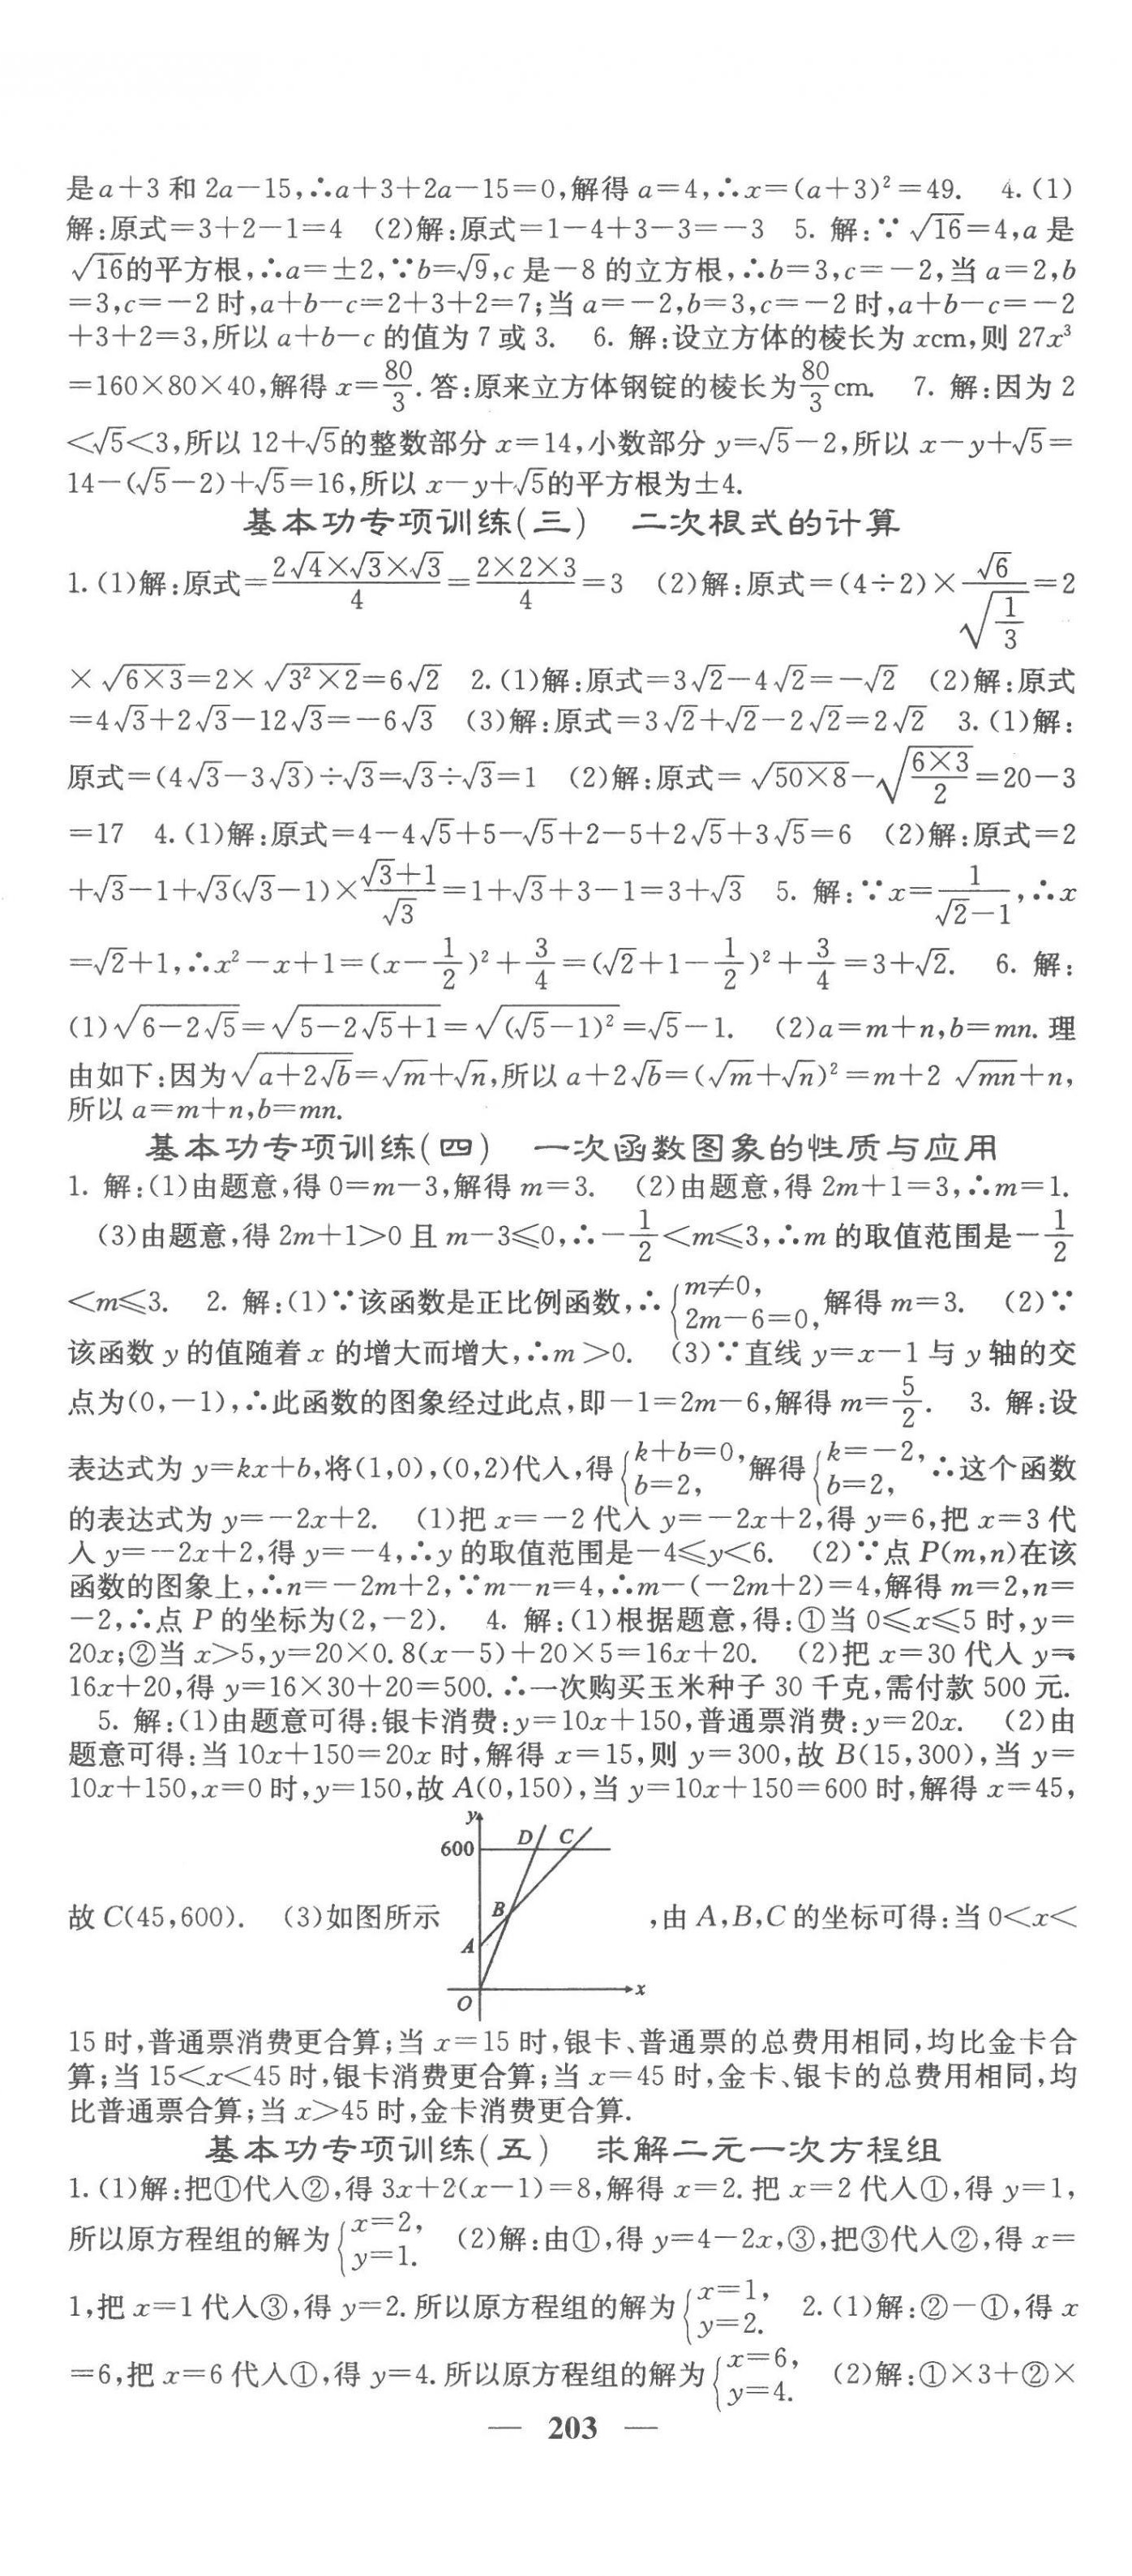 是a+3 和 2a-15,∴a+3+2a-15=0,解得 a=4,∴x=(a+3)²=49. 4.(1)
解:原式=3+2-1=4 (2)解:原式=1-4+3-3=-3 5. 解:∵√16=4,a 是
√16的平方根,∴a=±2,∵b=√9,c 是-8 的立方根,∴b=3,c=-2,当 a=2,b
=3,c=-2 时,a+b-c=2+3+2=7;当 a=-2,b=3,c=-2 时,a+b-c=-2
+3+2=3,所以 a+b-c 的值为 7 或 3. 6. 解:设立方体的棱长为 xcm,则 27x³
=160×80×40,解得 x=80/3.答:原来立方体钢锭的棱长为80/3cm. 7. 解:因为 2
<√5<3,所以 12+√5的整数部分 x=14,小数部分 y=√5-2,所以 x-y+√5=
14-(√5-2)+√5=16,所以 x-y+√5的平方根为±4.
基本功专项训练(三) 二次根式的计算
1.(1)解:原式=(2√4×√3×√3)/4=(2×2×3)/4=3 (2)解:原式=(4÷2)×√6/√(1/3)=2
×√(6×3)=2×√(3²×2)=6√2 2.(1)解:原式=3√2-4√2=-√2 (2)解:原式
=4√3+2√3-12√3=-6√3 (3)解:原式=3√2+√2-2√2=2√2 3.(1)解:
原式=(4√3-3√3)÷√3=√3÷√3=1 (2)解:原式=√(50×8)-√((6×3)/2)=20-3
=17 4.(1)解:原式=4-4√5+5-√5+2-5+2√5+3√5=6 (2)解:原式=2
+√3-1+√3(√3-1)×(√3+1)/√3=1+√3+3-1=3+√3 5. 解:∵x=1/(√2-1),∴x
=√2+1,∴x²-x+1=(x-1/2)²+3/4=(√2+1-1/2)²+3/4=3+√2. 6. 解:
(1)√(6-2√5)=√(5-2√5+1)=√((√5-1)²)=√5-1. (2)a=m+n,b=mn.理
由如下:因为√(a+2√b)=√m+√n,所以 a+2√b=(√m+√n)²=m+2√mn+n,
所以 a=m+n,b=mn.
基本功专项训练(四) 一次函数图象的性质与应用
1. 解:(1)由题意,得 0=m-3,解得 m=3. (2)由题意,得 2m+1=3,∴m=1.
(3)由题意,得 2m+1>0 且 m-3≤0,∴-1/2<m≤3,∴m 的取值范围是-1/2
<m≤3. 2. 解:(1)∵该函数是正比例函数,∴{m≠0, 2m-6=0, 解得 m=3. (2)∵
该函数 y 的值随着 x 的增大而增大,∴m>0. (3)∵直线 y=x-1 与 y 轴的交
点为(0,-1),∴此函数的图象经过此点,即-1=2m-6,解得 m=5/2. 3. 解:设
表达式为 y=kx+b,将(1,0),(0,2)代入,得{k+b=0, b=2, 解得{k=-2, b=2, ∴这个函数
的表达式为 y=-2x+2. (1)把 x=-2 代入 y=-2x+2,得 y=6,把 x=3 代
入 y=-2x+2,得 y=-4,∴y 的取值范围是-4≤y<6. (2)∵点 P(m,n)在该
函数的图象上,∴n=-2m+2,∵m-n=4,∴m-(-2m+2)=4,解得 m=2,n=
-2,∴点 P 的坐标为(2,-2). 4. 解:(1)根据题意,得:①当 0≤x≤5 时,y=
20x;②当 x>5,y=20×0.8(x-5)+20×5=16x+20. (2)把 x=30 代入 y=
16x+20,得 y=16×30+20=500.∴一次购买玉米种子 30 千克,需付款 500 元.
5. 解:(1)由题意可得:银卡消费:y=10x+150,普通票消费:y=20x. (2)由
题意可得:当 10x+150=20x 时,解得 x=15,则 y=300,故 B(15,300),当 y=
10x+150,x=0 时,y=150,故 A(0,150),当 y=10x+150=600 时,解得 x=45,
y
600 D C
故 C(45,600). (3)如图所示 B ,由 A,B,C 的坐标可得:当 0<x<
A
O x
15 时,普通票消费更合算;当 x=15 时,银卡、普通票的总费用相同,均比金卡合
算;当 15<x<45 时,银卡消费更合算;当 x=45 时,金卡、银卡的总费用相同,均
比普通票合算;当 x>45 时,金卡消费更合算.
基本功专项训练(五) 求解二元一次方程组
1.(1)解:把①代入②,得 3x+2(x-1)=8,解得 x=2.把 x=2 代入①,得 y=1,
所以原方程组的解为{x=2, y=1. (2)解:由①,得 y=4-2x,③,把③代入②,得 x=
1,把 x=1 代入③,得 y=2.所以原方程组的解为{x=1, y=2. 2.(1)解:②-①,得 x
=6,把 x=6 代入①,得 y=4.所以原方程组的解为{x=6, y=4. (2)解:①×3+②×
— 203 —